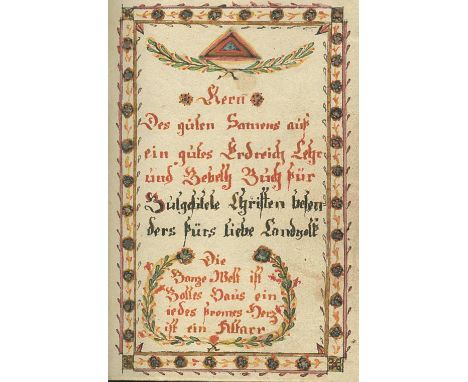 Kern
Des guten Samens auf
ein gutes Erdreich Lehr
und Bebeth Buch für
Gutgesinte Christen besen
ders fürs liebe Landvolk
Die
Ganze Welt ist
Gottes Haus ein
iedes fromes Herz
ist ein Altarr